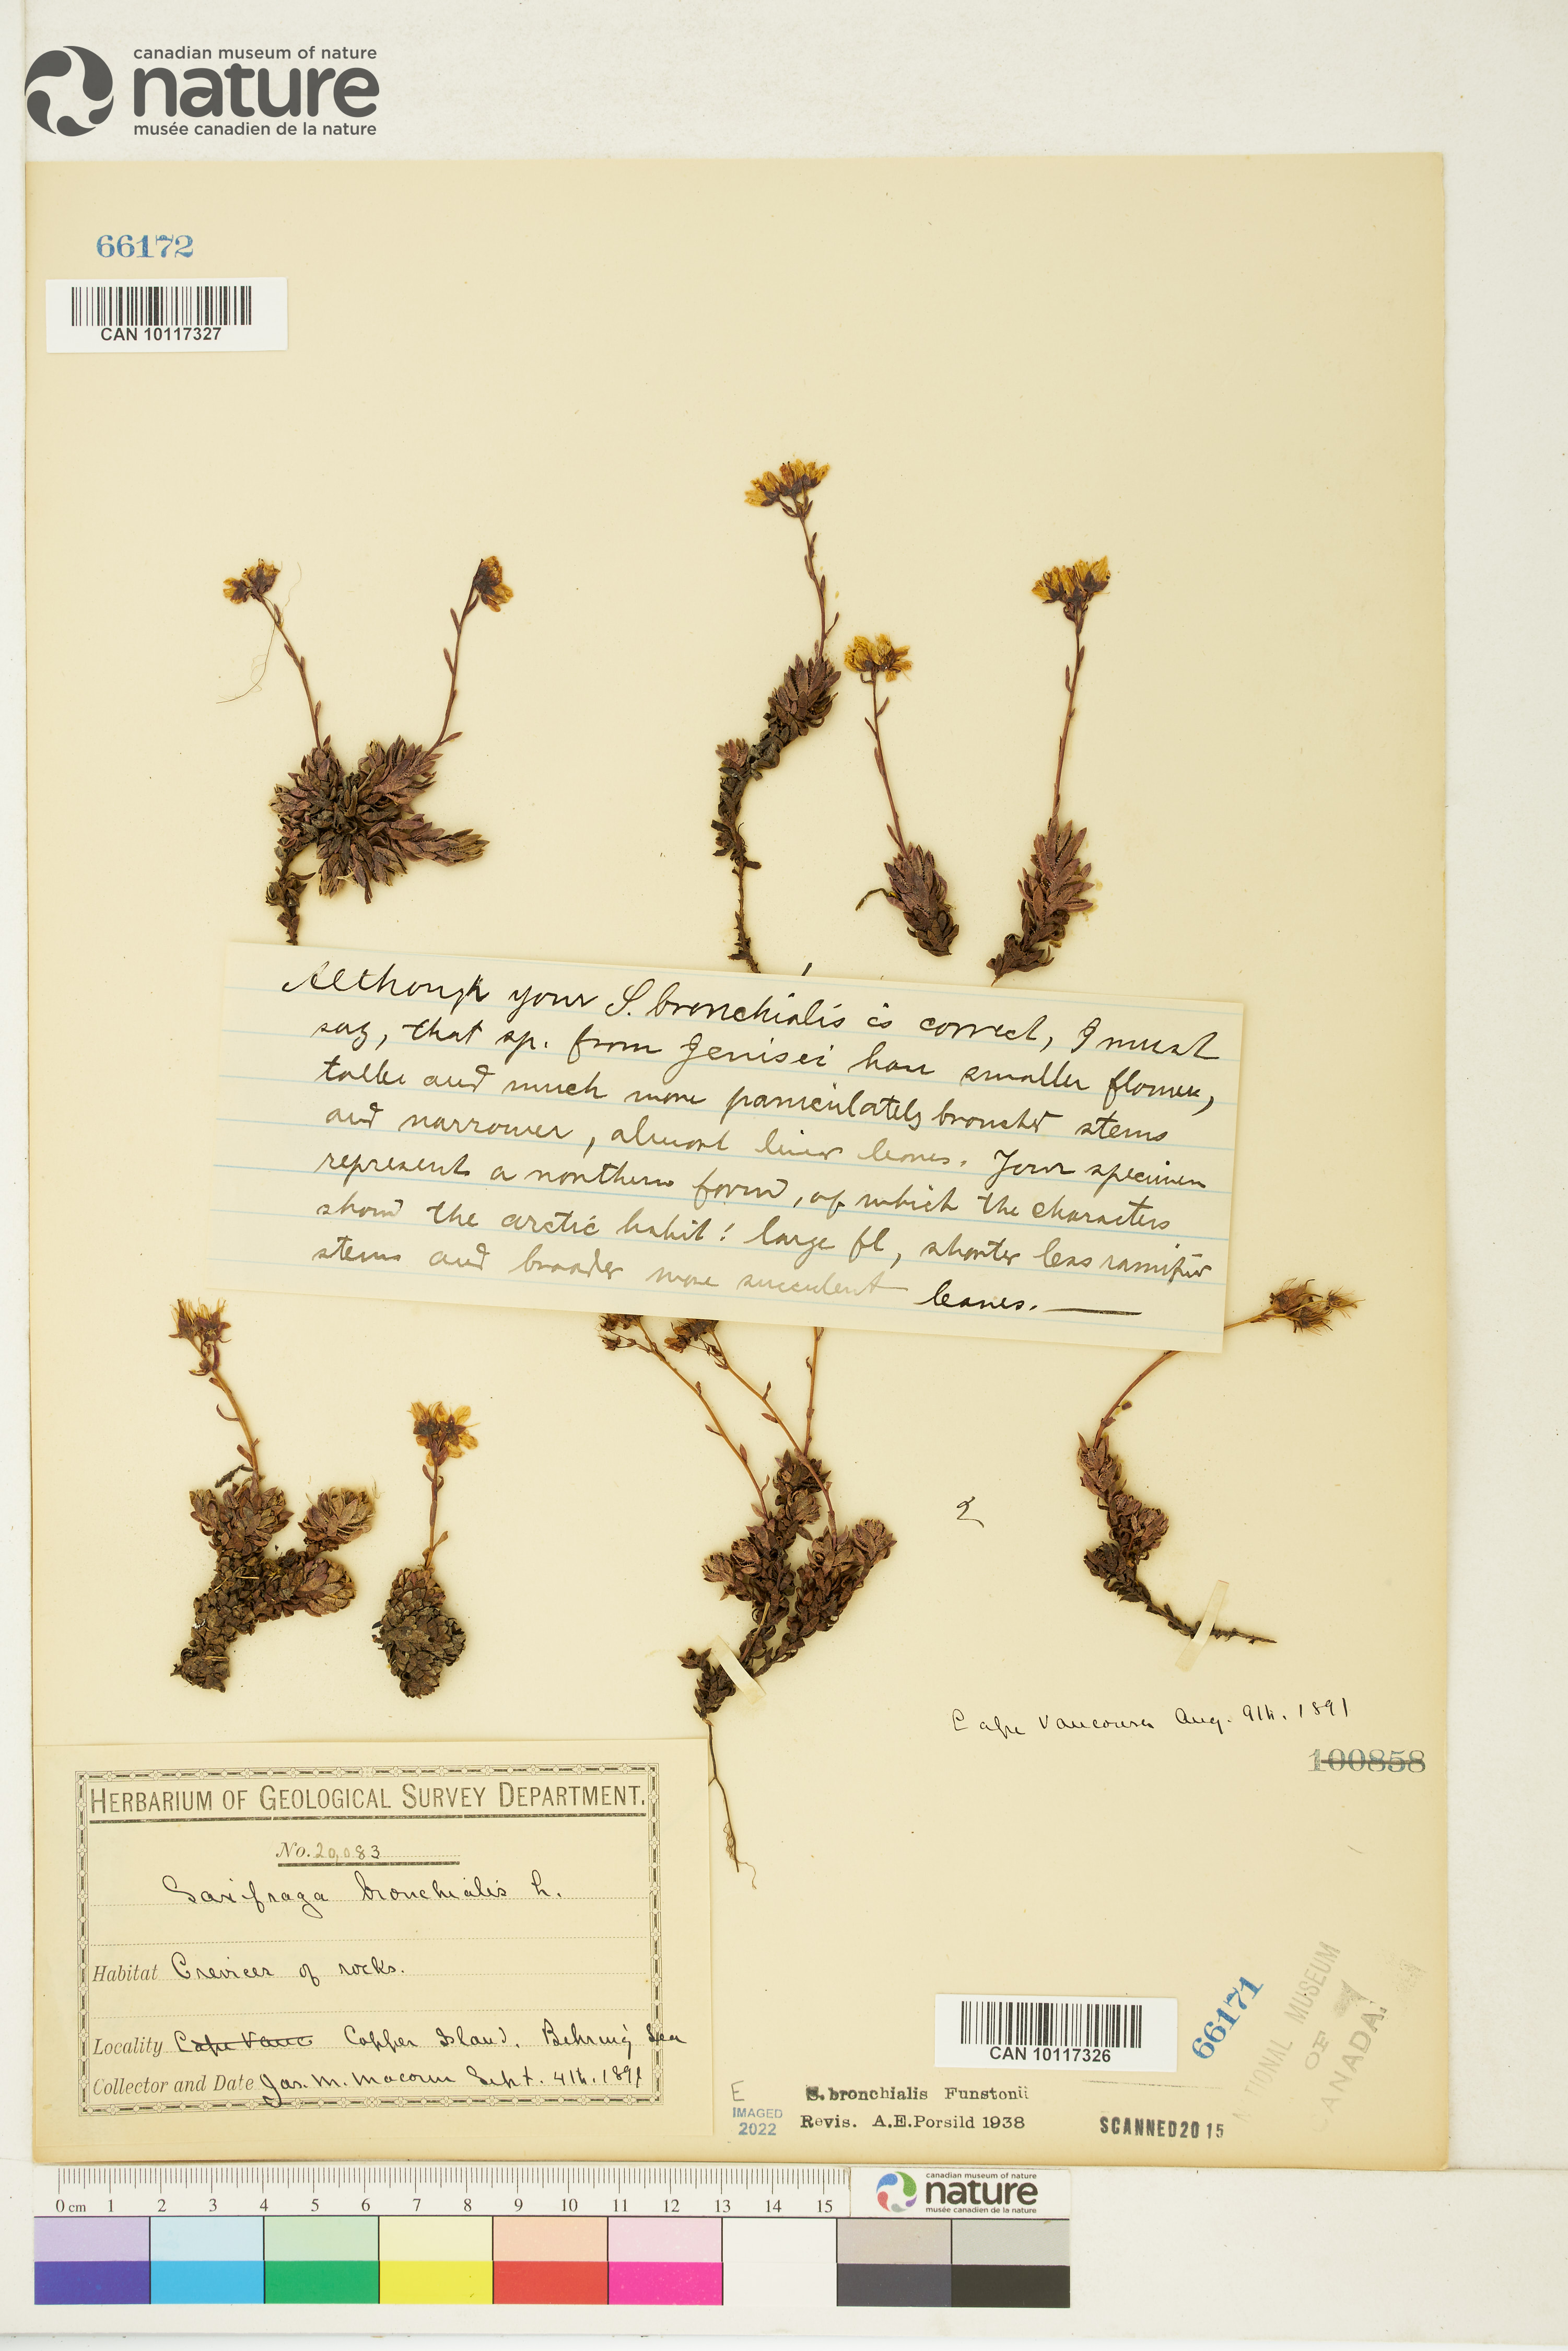 canadian museum of nature
nature
musée canadien de la nature
66172
CAN 10117327
1
Although your S. bronchialis is correct, I must
say, that sp. from Jenisei have smaller flowers,
taller and much more paniculately branched stems
and narrower, almost linear leaves. Your specimen
represent a northern form, of which the characters
show the arctic habit: large fl, shorter less ramified
stems and broader more succulent leaves. —
2
Cape Vancouver Aug. 9th. 1891
100858
HERBARIUM OF GEOLOGICAL SURVEY DEPARTMENT.
No. 20,083
Saxifraga bronchialis L.
Habitat Crevices of rocks.
Locality Cape Vanc Copper Island. Behring Sea
Collector and Date Jas. M. Macoun Sept. 4th. 1891
CAN 10117326
66171
NATIONAL MUSEUM
OF
CANADA.
E
IMAGED
2022
S. bronchialis Funstonii
Revis. A.E.Porsild 1938
SCANNED 2015
0 cm 1 2 3 4 5 6 7 8 9 10 11 12 13 14 15
canadian museum of nature
nature
musée canadien de la nature